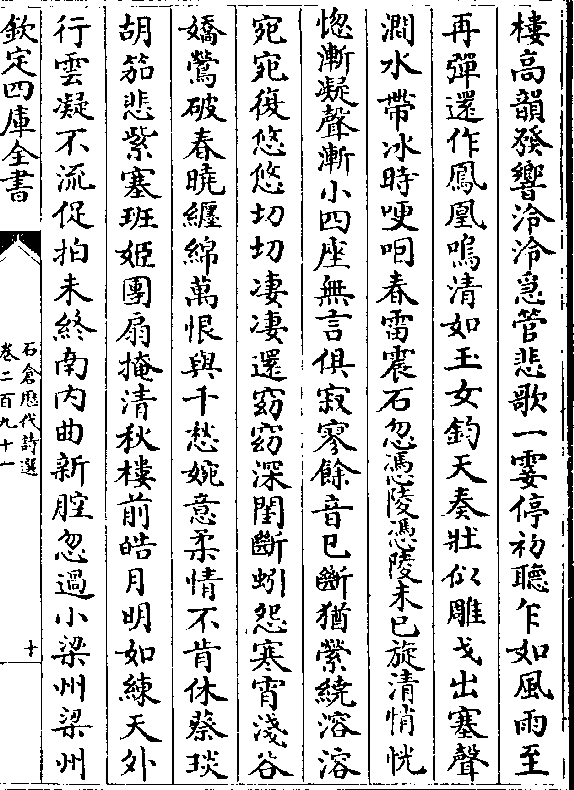 樓高韻發響泠泠急管悲歌一霎停初聽乍如風雨至
再彈還作鳳凰鳴清如玉女鈞天奏壯似雕戈出塞聲
澗水帶冰時哽咽春雷震石忽憑陵憑陵未已旋清悄恍
惚漸凝聲漸小四座無言俱寂寥餘音已斷猶縈繞溶溶
宛宛復悠悠切切凄凄還窈窈深閨斷蚓怨寒宵淺谷
嬌鶯破春曉纏綿萬恨與千愁婉意柔情不肯休蔡琰
胡笳悲紫塞班姬團扇掩清秋樓前皓月明如練天外
行雲凝不流促拍未終南内曲新腔忽過小梁州梁州
欽定四庫全書
石倉歷代詩選
卷二百九十一
十